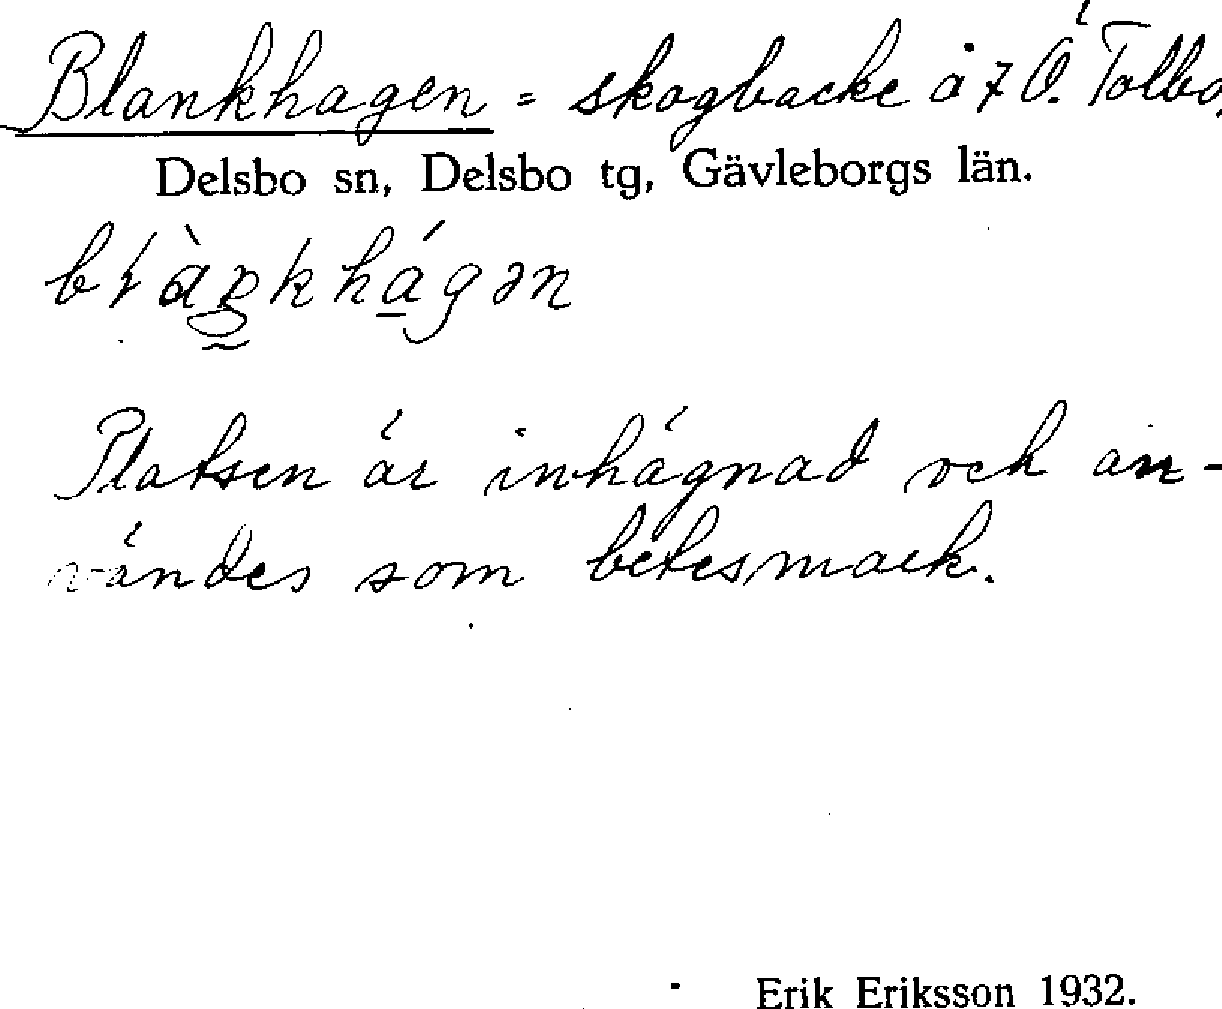 Blankhagen = skogbacke å 7 Ö. Tolbo,
Delsbo sn, Delsbo tg, Gävleborgs län.
Platsen är inhägnad och an-
vändes som betesmark.
Erik Eriksson 1932.